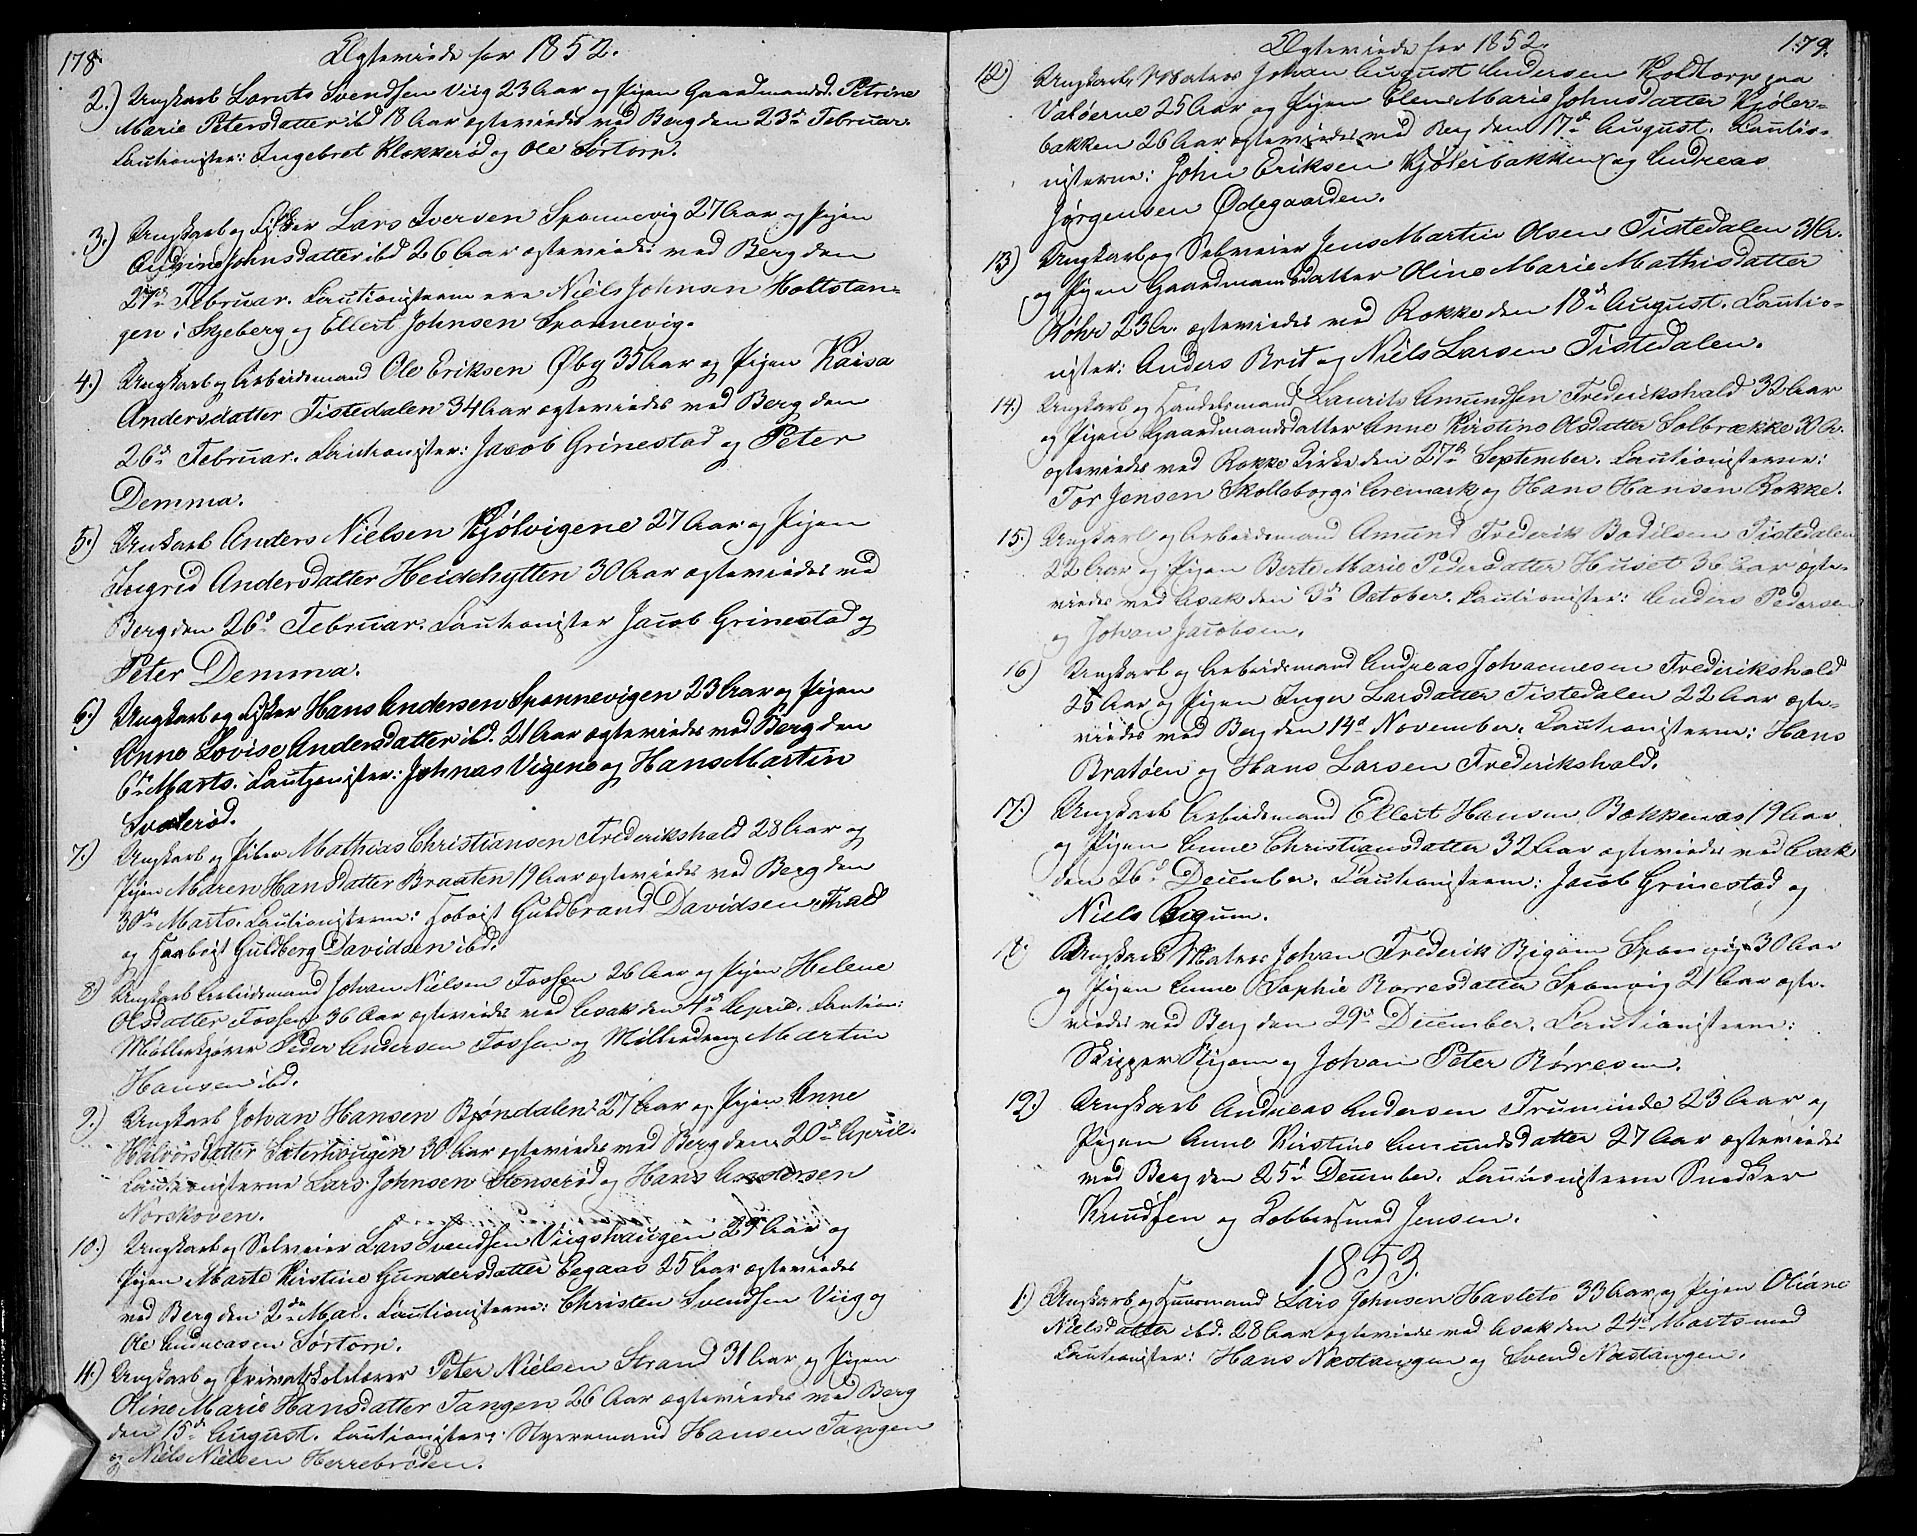 178
Ægteviede for 1852.
2.) Ungkarl Laruts Svendsen Viig 23 Aar og Pigen Gaardmandsd. Petrine
Marie Petersdatter ibd 18 Aar ægteviedes ved Berg den 23de Februar.
Cautionister: Ingebret Klokkerød og Ole Sørtorp.
3.) Ungkarl og Fisker Lars Iversen Sponnevig 27 Aar og Pigen
Andrine Johnsdatter ibd 26 Aar ægteviedes ved Berg den
27de Februar. Cautionisterne ere Niels Johnsen Holtstan-
gen i Skjeberg og Ellert Johnsen Sponnevig.
4.) Ungkarl og Arbeidsmand Ole Eriksen Øby 35 Aar og Pigen Kaisa
Andersdatter Tistedalen 34 Aar ægteviedes ved Berg den
26de Februar. Cautionister: Jacob Grinestad og Peter
Demma.
5.) Unkarl Anders Nielsen Kjølvigene 27 Aar og Pigen
Ingrid Andersdatter Heidehytten 30 Aar ægteviedes ved
Berg den 26de Februar. Cautionister Jacob Grinestad og
Peter Demma.
6.) Ungkarl og Fisker Hans Andersen Sponnevigen 23 Aar og Pigen
Anne Lovise Andersdatter ibd. 21 Aar ægteviedes ved Berg den
6te Marts. Cautionister: Johnas Vigene og Hans Martin
Svalerød.
7.) Ungkarl og Mathias Christiansen Frederikshald 28 Aar og
Pigen Maren Hansdatter Braaten 19 Aar ægteviedes ved Berg den
30te Marts. Cautionisterne: Hoboist Guldbrand Davidsen Fhald
og Haaboist Guldberg Davidsen ibd.
8.) Ungkarl Arbeidsmand Johan Nielsen Fossen 26 Aar og Pigen Helene
Olsdatter Fossen 36 Aar ægteviedes ved Asak den 4de April. Caution:
Møllerkjører Peder Andersen Fossen og Møllerdreng Martin
Hansen ibd.
9.) Ungkarl Johan Hansen Bjøndalen 27 Aar og Pigen Anne
Halvorsdatter Sæterhougen 30 Aar ægteviedes ved Berg den 20de April.
Cautionisterne Lars Johnsen Stenserød og Hans Andersen
Norskoven.
10.) Ungkarl og Selveier Lars Svendsen Viigshaugen 29 Aar og
Pigen Marte Kirstine Gundersdatter Eegaas 25 Aar ægteviedes
ved Berg den 2den Mai. Cautionisterne: Christen Svendsen Viig og
Ole Andreasen Sørtorp.
11.) Ungkarl og Privatskolelærer Peter Nielsen Strand 31 Aar og Pigen
Oline Marie Hansdatter Tangen 26 Aar ægteviedes ved Berg
den 15de August. Cautionister: Styrremand Hansen Tangen
og Niels Nielsen Herrebrøden.
179.
Ægteviede for 1852.
12.) Ungkarl Matros Johan August Andersen Holdtorp paa
Valøerne 25 Aar og Pigen Elen Marie Johnsdatter Kjøler-
bakken 26 Aar ægteviedes ved Berg den 17de August. Cautio-
nisterne: John Eriksen Kjølerbakken og Andreas
Jørgensen Ødegaarden.
13.) Ungkarl og Selveier Jens Martin Olsen Tistedalen 31 Ar.
og Pigen Gaardmandsdatter Oline Marie Mathisdatter
Røhr 23 Ar. ægteviedes ved Rokke den 18de August. Cautio-
nister: Anders Brit og Niels Larsen Tistedalen.
14.) Ungkarl og Handelsmand Laurits Amundsen Frederikshald 32 Aar
og Pigen Gaardmandsdatter Anne Kirstine Olsdatter Solbrække 30 Ar.
ægteviedes ved Rokke Kirke den 27de September. Cautionisterne:
Tor Jensen Skollsborg i Aremark og Hans Hansen Rokke.
15.) Ungkarl og Arbeidsmand Amund Frederik Bodilsen Tistedalen
22 Aar og Pigen Berte Marie Pedersdatter Huset 36 Aar ægte-
viedes ved Asak den 3de October. Cautionister: Anders Pedersen
og Johan Jacobsen.
16) Ungkarl og Arbeidsmand Andreas Johannesen Frederikshald
25 Aar og Pigen Inger Larsdatter Tistedalen 22 Aar ægte-
viedes ved Berg den 14de November. Cautionisterne: Hans
Bratøen og Hans Larsen Frederikshald.
17.) Ungkarl Arbeidsmand Ellert Hansen Bækkenæs 19 Aar
og Pigen Anne Christiansdatter 32 Aar ægteviedes ved Asak
den 26de December. Cautionisterne: Jacob Grinestad og
Niels Bigum.
18) Ungkarl Matros Johan Frederik Bigom Sponvig 30 Aar
og Pigen Anne Sophie Borresdatter Sponvig 21 Aar ægte-
viedes ved Berg den 29de December. Cautionisterne:
Skipper Bigom og Johan Peter Børresen.
19.) Ungkarl Andreas Andersen Truminde 23 Aar og
Pigen Anne Kirstine Amundsdatter 27 Aar ægteviedes
ved Berg den 25de December. Cautionisterne Snedker
Knudsen og Kobbersmed Jensen.
1853.
1.) Ungkarl og Huusmand Lars Johnsen Hasleto 33 Aar og Pigen Oliane
Nielsdatter ibd. 28 Aar ægteviede ved Asak den 24de Marts med
Cautionister: Hans Næstangen og Svend Næstangen.